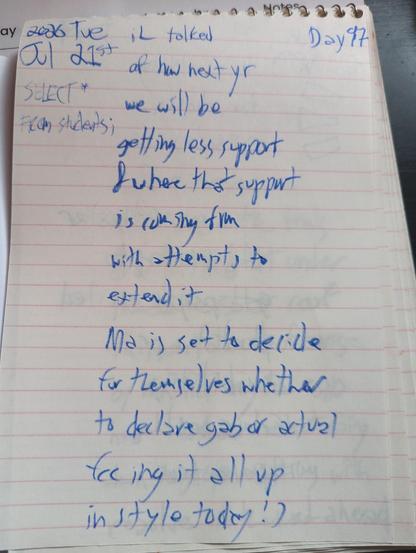 Notes
ay
2026 Tue
Jul 21st
Day 97
SELECT *
From students;
iL talked
of how next yr
we will be
getting less support
& where that support
is coming from
with attempts to
extend it
Ma is set to decide
for themselves whether
to declare gab or actual
it all up
in style today!)